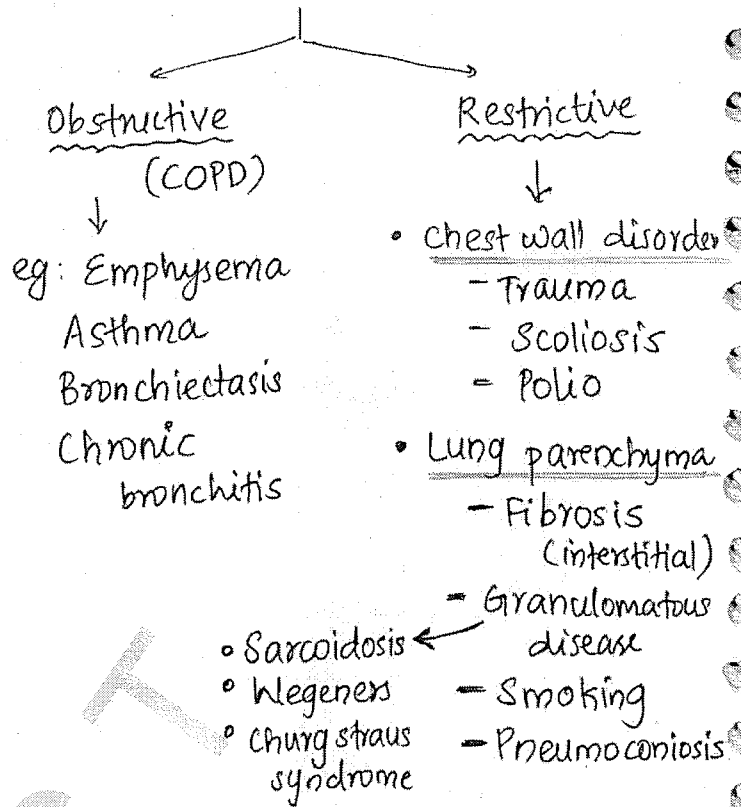 Obstructive
(COPD)
eg: Emphysema
Asthma
Bronchiectasis
Chronic
bronchitis
Restrictive
• Chest wall disorder
- Trauma
- Scoliosis
- Polio
• Lung parenchyma
- Fibrosis
(interstitial)
- Granulomatous
disease
• Sarcoidosis
• Wegeners
• Churg straus
syndrome
- Smoking
- Pneumoconiosis